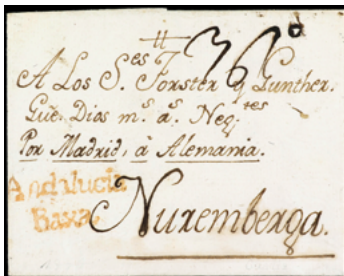 36
A Los S.es Forster y Gunther.
Gue. Dios m.s a.s Neg.tes
Por Madrid, à Alemania.
Andalucia
Baxa
Nuremberga.